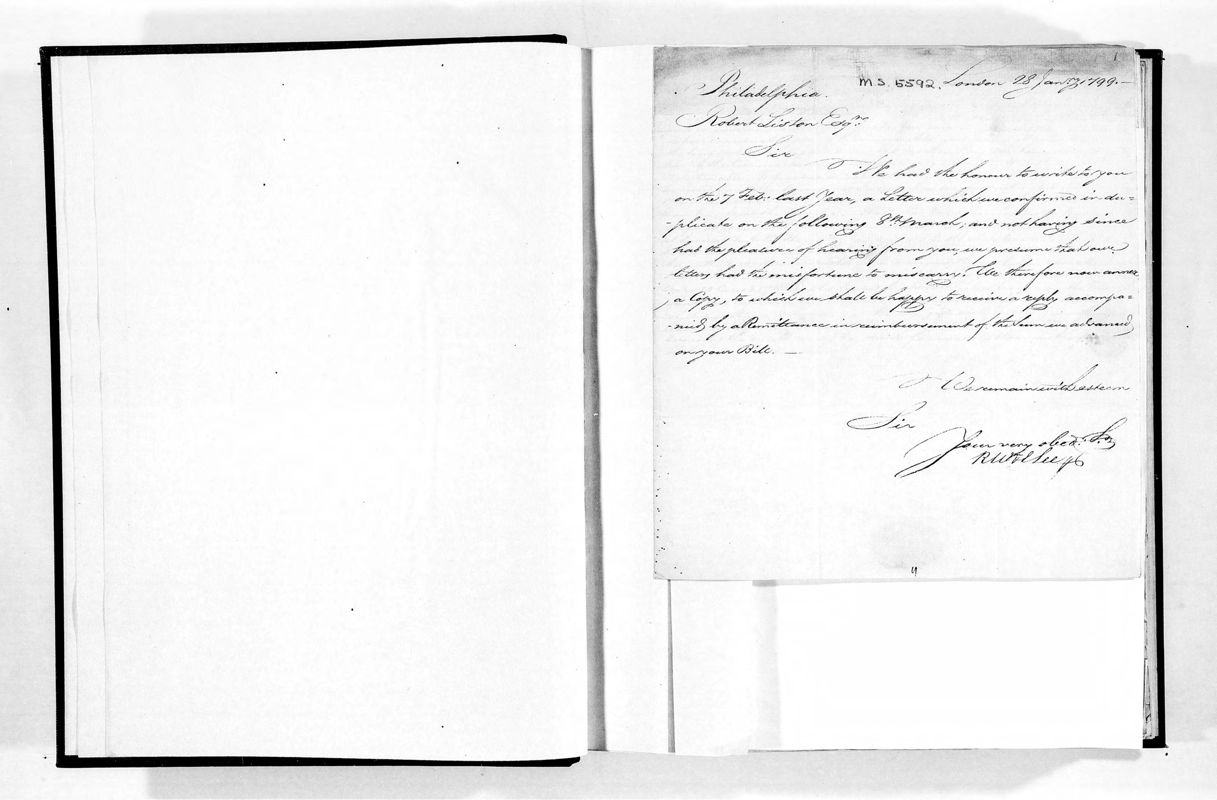 1
MS. 5592. London 28 Jany. 1799.—
Philadelphia.
Robert Liston Esqre.
Sir
We had the honour to write to you
on the 7 Feb: last Year, a Letter which we confirmed in du=
-plicate on the following 8th March; and not having since
had the pleasure of hearing from you, we presume that our
letters had the misfortune to miscarry. We therefore now annex
a Copy, to which we shall be happy to receive a reply accompa=
-nied by a Remittance in reimbursement of the sum we advanced
on your Bill. —
We remain with esteem
Sir
Your very obedt.